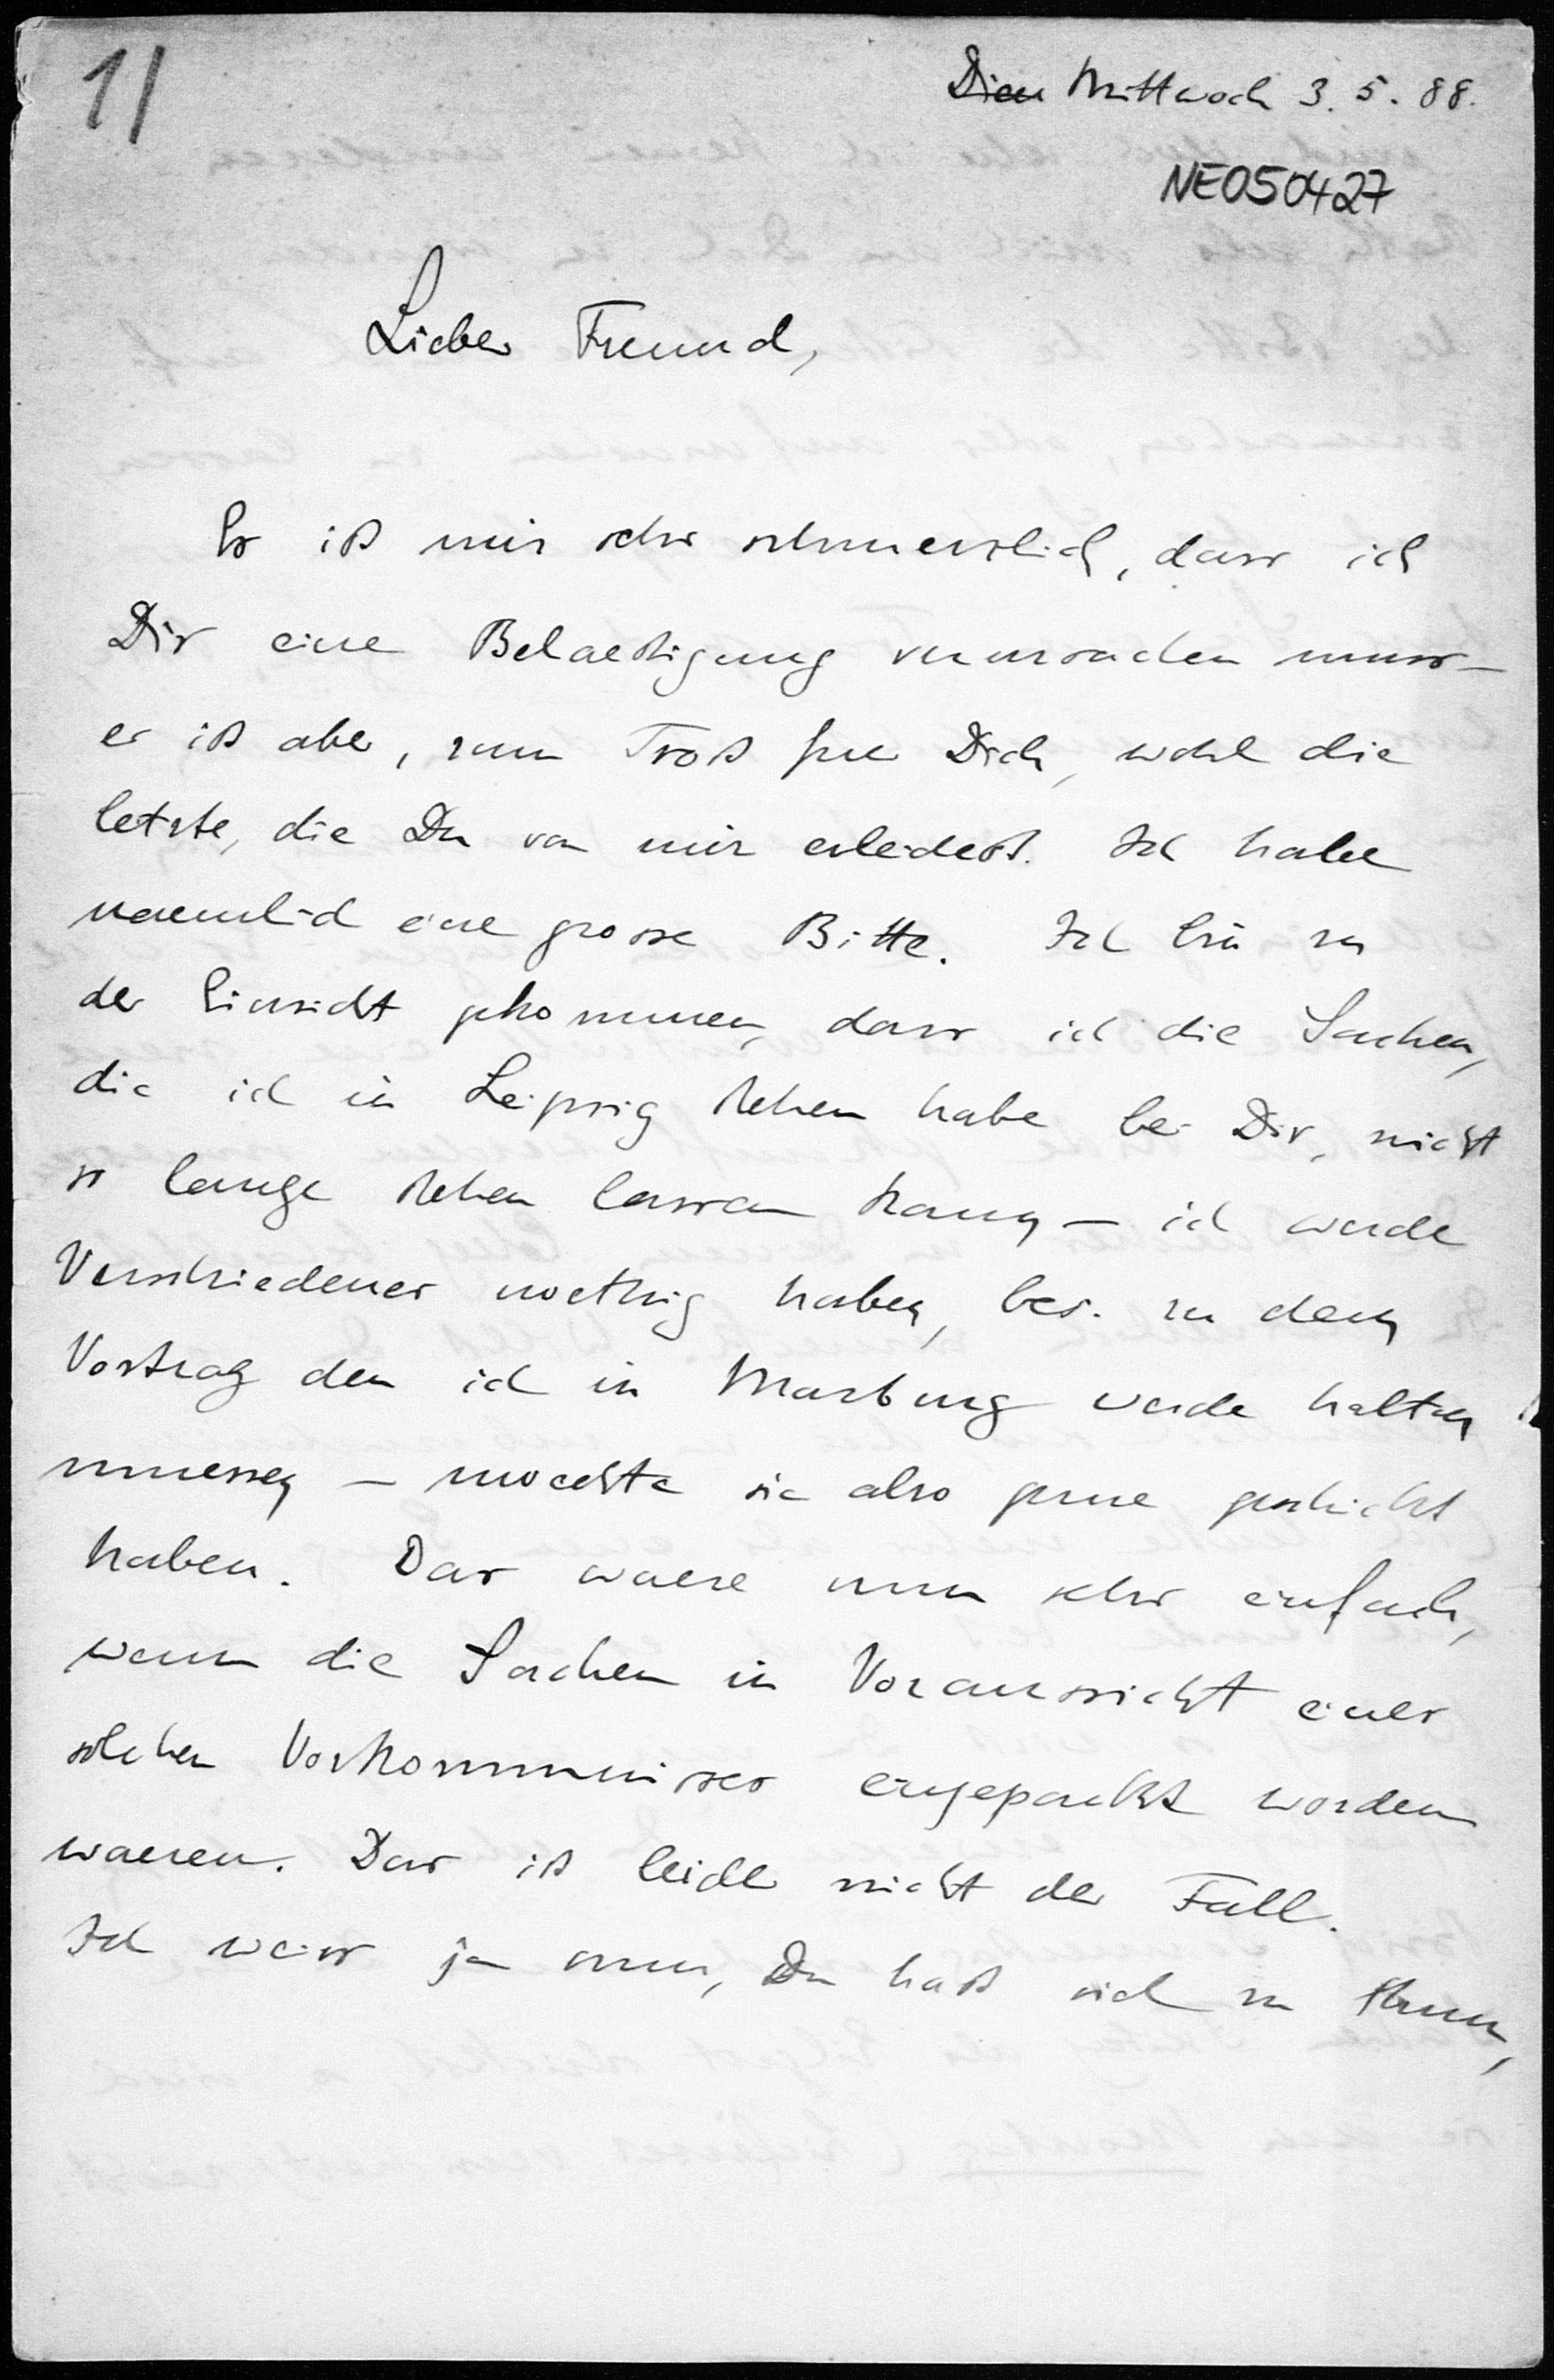 11
Dien Mittwoch 3. 5. 88.
NE050427
Lieber Freund,
Es ist mir sehr schmerzlich, dass ich
Dir eine Belaestigung verursachen muss —
es ist aber, zum Trost fuer Dich, wohl die
letzte, die Du von mir erleidest. Ich habe
naemlich eine grosse Bitte. Ich bin zu
der Einsicht gekommen, dass ich die Sachen,
die ich in Leipzig stehen habe bei Dir, nicht
so lange stehen lassen kann — ich werde
Verschiedenes noethig haben, bes. zu dem
Vortrag den ich in Marburg werde halten
muessen — moechte sie also gerne geschickt
haben. Das waere nun sehr einfach,
wenn die Sachen in Voraussicht eines
solchen Vorkommnisses eingepackt worden
waeren. Das ist leider nicht der Fall.
Ich weiss ja nun, Du hast viel zu thun,